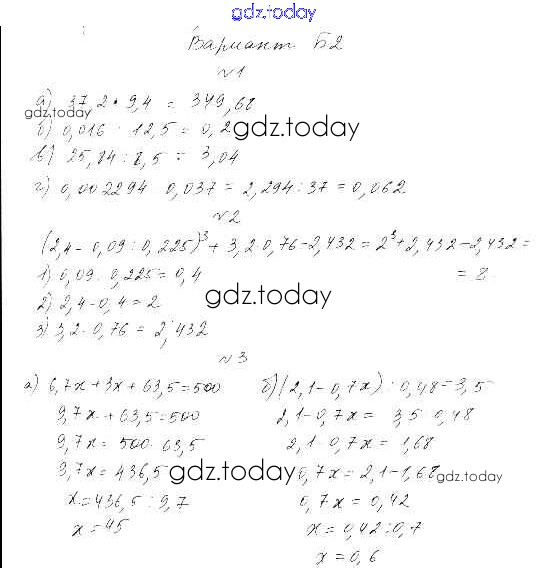 gdz.today
Вариант Б2
№1
а) 37,2 · 9,4 = 349,68
gdz.today
б) 0,016 · 12,5 = 0,2
gdz.today
в) 25,84 : 8,5 = 3,04
г) 0,002294 : 0,037 = 2,294 : 37 = 0,062
№2
(2,4 - 0,09 : 0,225)³ + 3,2 · 0,76 - 2,432 = 2³ + 2,432 - 2,432 =
= 8
1) 0,09 : 0,225 = 0,4
2) 2,4 - 0,4 = 2
gdz.today
3) 3,2 · 0,76 = 2,432
№3
а) 6,7x + 3x + 63,5 = 500
9,7x + 63,5 = 500
9,7x = 500 - 63,5
9,7x = 436,5
gdz.today
x = 436,5 : 9,7
x = 45
б) (2,1 - 0,7x) : 0,48 = 3,5
2,1 - 0,7x = 3,5 · 0,48
2,1 - 0,7x = 1,68
0,7x = 2,1 - 1,68
gdz.today
0,7x = 0,42
x = 0,42 : 0,7
x = 0,6